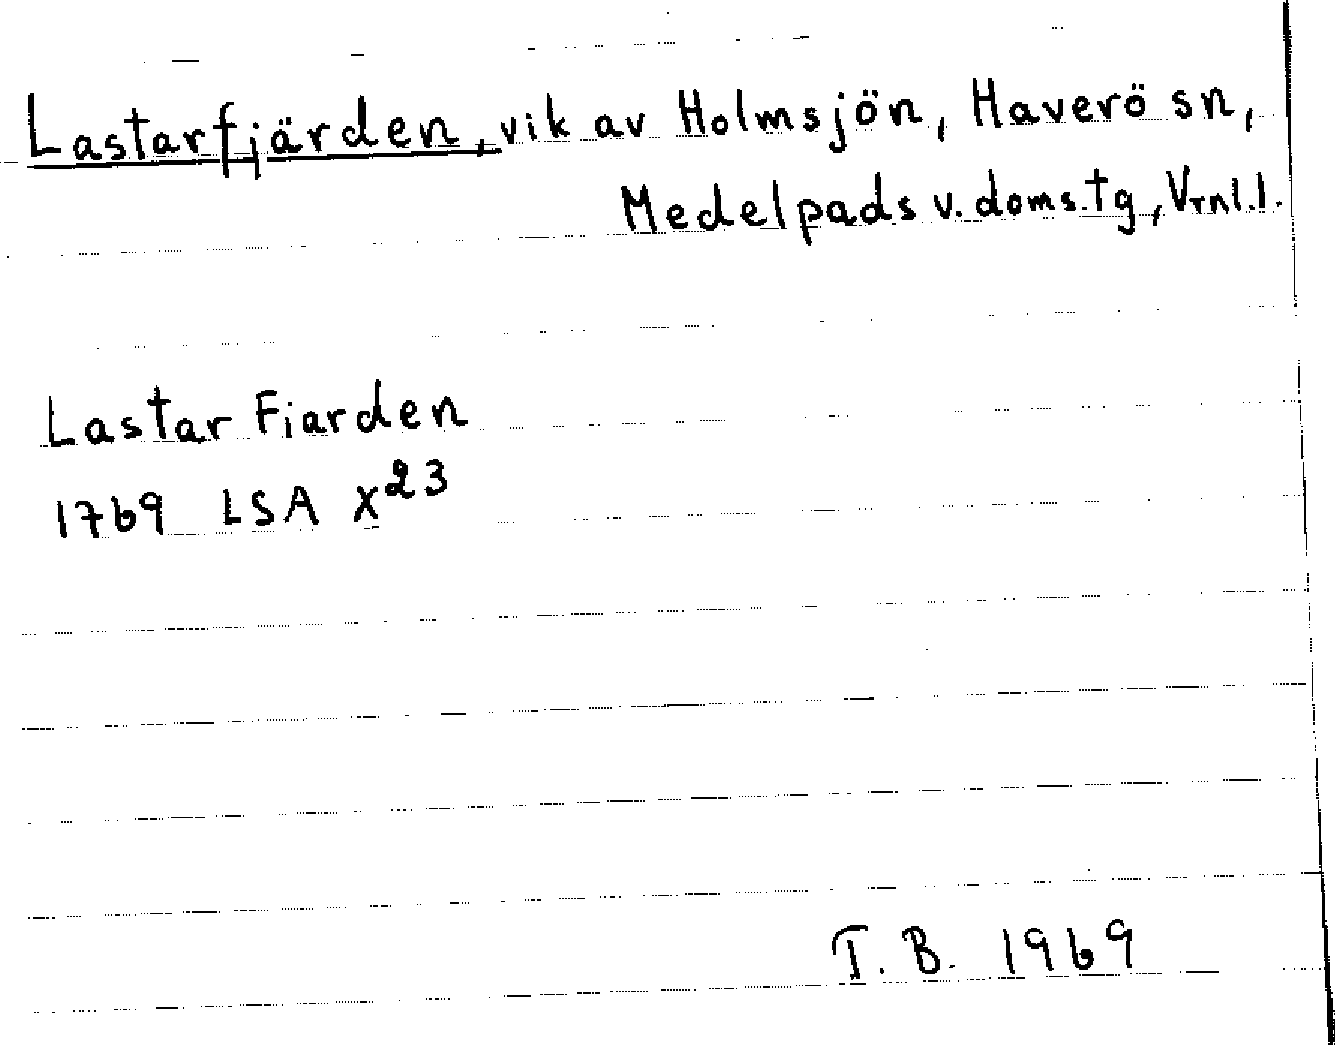 Lastarfjärden, vik av Holmsjön, Haverö sn,
Medelpads v. doms.tg, Vrnl.l.
Lastar Fiarden
1769 LSA X23
T. B. 1969